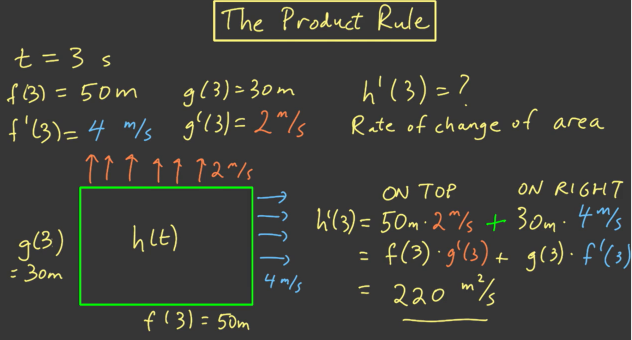 The Product Rule
t = 3 s
f(3) = 50m g(3) = 30m
f'(3) = 4 m/s g'(3) = 2 m/s
h'(3) = ?
Rate of change of area
↑↑↑ ↑↑↑ 2 m/s
g(3)
= 30m
h(t)
4 m/s
f(3) = 50m
ON TOP ON RIGHT
h'(3) = 50m · 2 m/s + 30m · 4 m/s
= f(3) · g'(3) + g(3) · f'(3)
= 220 m²/s